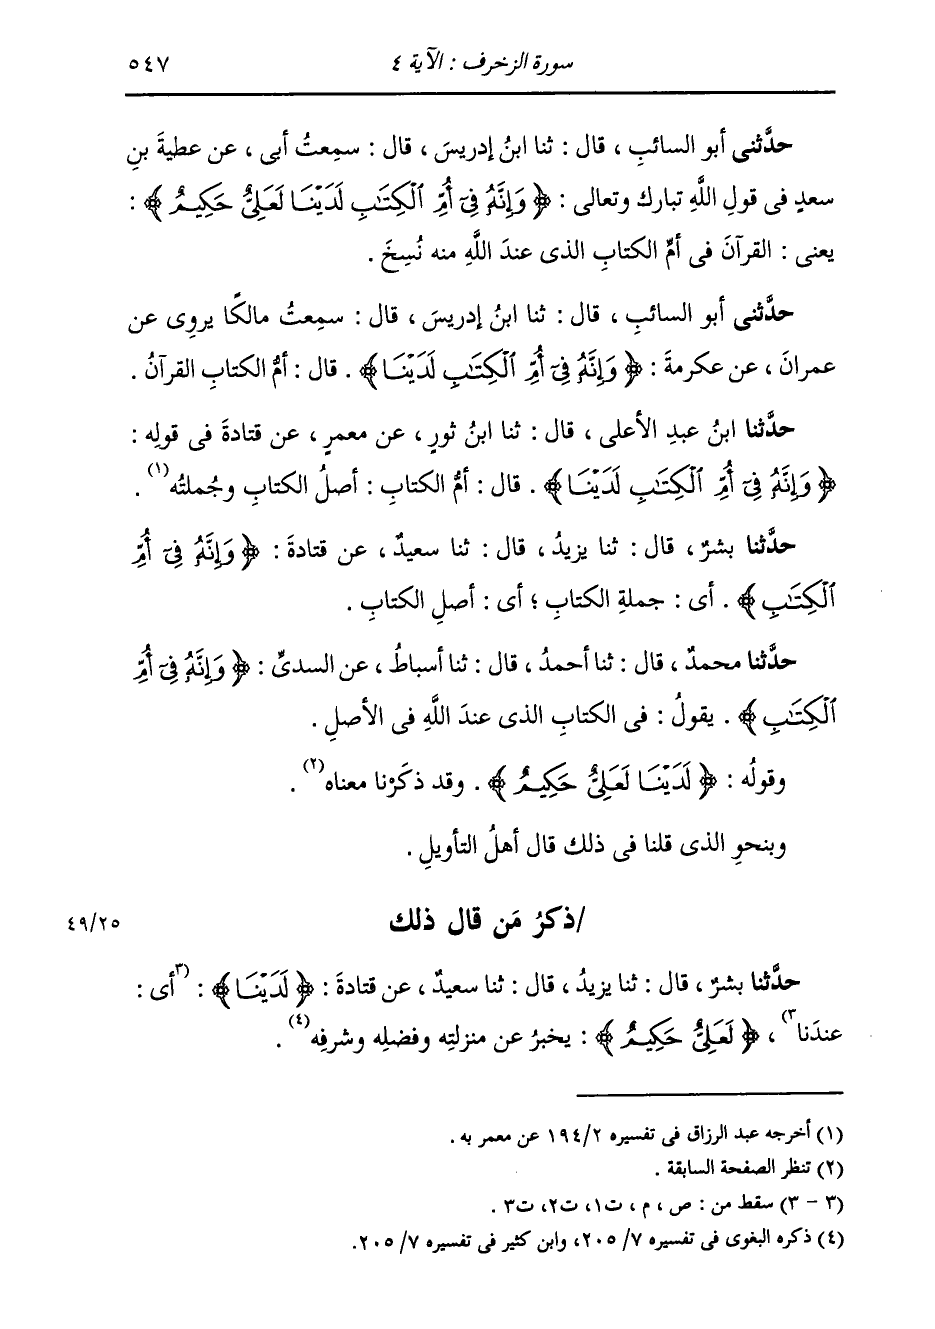 سورة الزخرف : الآية ٤ ٥٤٧
حدَّثنى أبو السائبِ ، قال : ثنا ابنُ إدريسَ ، قال : سمِعتُ أبى ، عن عطيةَ بنِ
سعدٍ فى قولِ اللَّهِ تبارك وتعالى : ﴿ وَإِنَّهُ فِىٓ أُمِّ ٱلْكِتَٰبِ لَدَيْنَا لَعَلِىٌّ حَكِيمٌ ﴾ :
يعنى : القرآنَ فى أمِّ الكتابِ الذى عندَ اللَّهِ منه نُسِخَ .
حدَّثنى أبو السائبِ ، قال : ثنا ابنُ إدريسَ ، قال : سمِعتُ مالكًا يروِى عن
عمرانَ ، عن عكرمةَ : ﴿ وَإِنَّهُ فِىٓ أُمِّ ٱلْكِتَٰبِ لَدَيْنَا ﴾ . قال : أمُّ الكتابِ القرآنُ .
حدَّثنا ابنُ عبدِ الأعلى ، قال : ثنا ابنُ ثورٍ ، عن معمرٍ ، عن قتادةَ فى قولِه :
﴿ وَإِنَّهُ فِىٓ أُمِّ ٱلْكِتَٰبِ لَدَيْنَا ﴾ . قال : أمُّ الكتابِ : أصلُ الكتابِ وجُملتُه(١) .
حدَّثنا بشرٌ ، قال : ثنا يزيدُ ، قال : ثنا سعيدٌ ، عن قتادةَ : ﴿ وَإِنَّهُ فِىٓ أُمِّ
ٱلْكِتَٰبِ ﴾ . أى : جملةِ الكتابِ ؛ أى : أصلِ الكتابِ .
حدَّثنا محمدٌ ، قال : ثنا أحمدُ ، قال : ثنا أسباطُ ، عن السدىِّ : ﴿ وَإِنَّهُ فِىٓ أُمِّ
ٱلْكِتَٰبِ ﴾ . يقولُ : فى الكتابِ الذى عندَ اللَّهِ فى الأصلِ .
وقولُه : ﴿ لَدَيْنَا لَعَلِىٌّ حَكِيمٌ ﴾ . وقد ذكَرْنا معناه(٢) .
وبنحوِ الذى قلنا فى ذلك قال أهلُ التأويلِ .
/ذكرُ مَن قال ذلك ٤٩/٢٥
حدَّثنا بشرٌ ، قال : ثنا يزيدُ ، قال : ثنا سعيدٌ ، عن قتادةَ : ﴿ لَدَيْنَا ﴾ : (٣أى :
عندَنا٣) ، ﴿ لَعَلِىٌّ حَكِيمٌ ﴾ : يخبرُ عن منزلتِه وفضلِه وشرفِه(٤) .
(١) أخرجه عبد الرزاق فى تفسيره ١٩٤/٢ عن معمر به .
(٢) تنظر الصفحة السابقة .
(٣ - ٣) سقط من : ص ، م ، ت١، ت٢، ت٣ .
(٤) ذكره البغوى فى تفسيره ٧/ ٢٠٥، وابن كثير فى تفسيره ٧/ ٢٠٥.